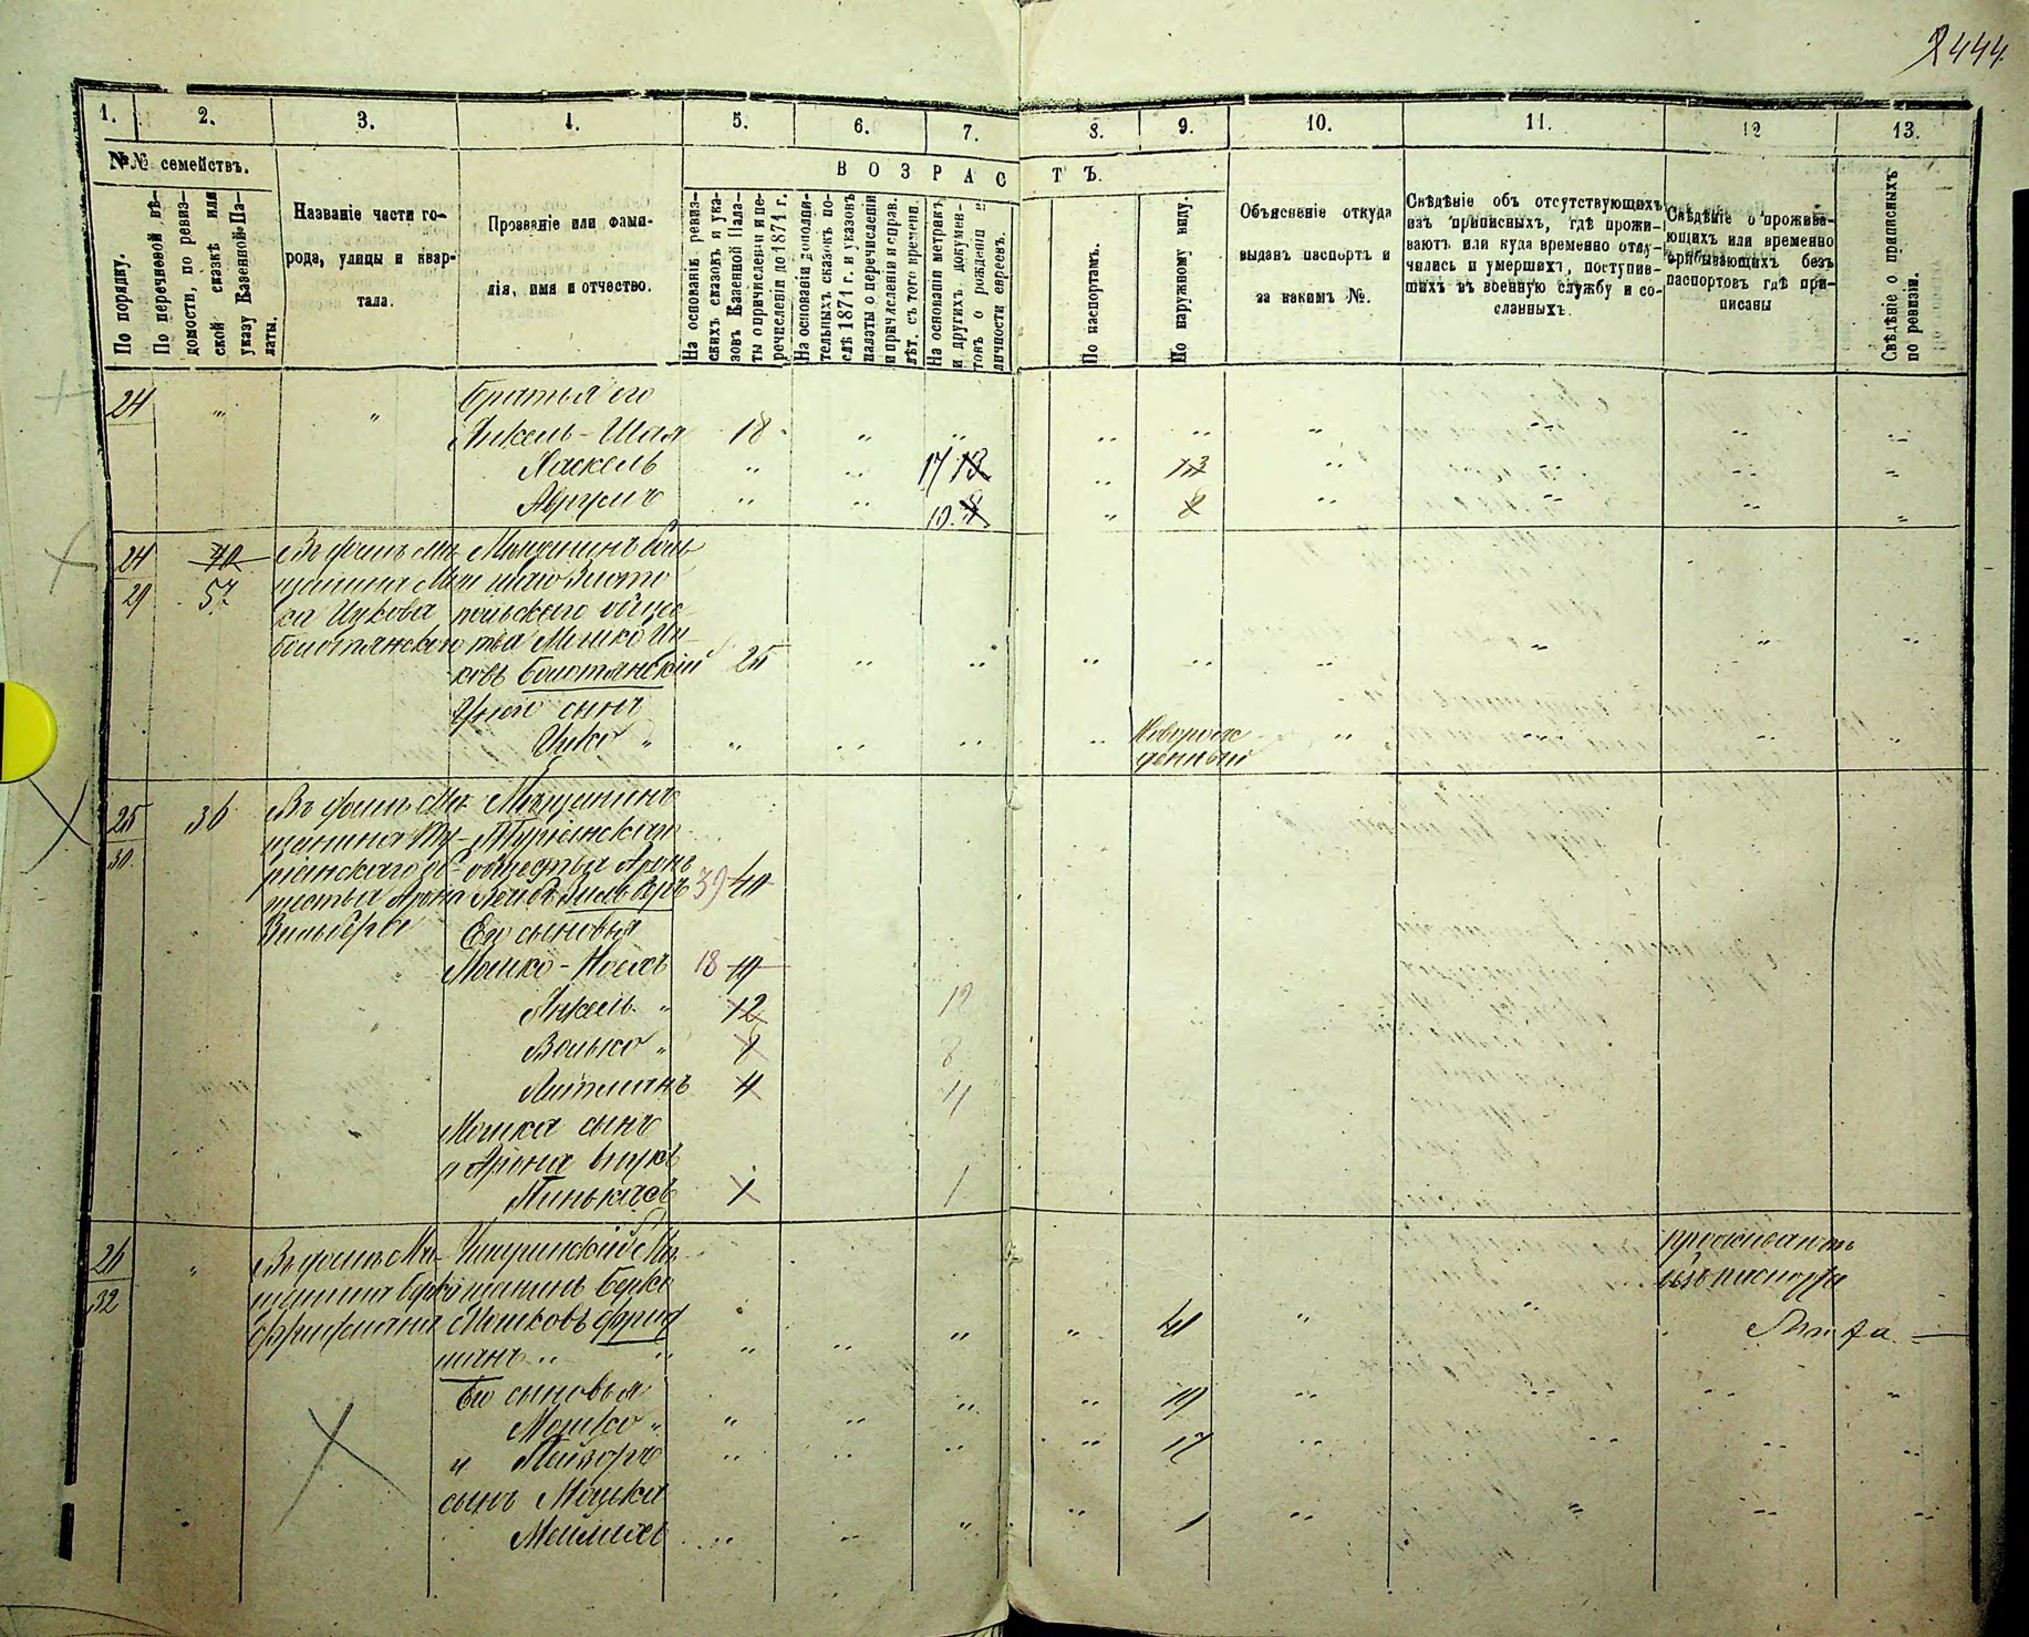 444.
1. 2. 3. 4. 5. 6. 7. 8. 9. 10. 11. 12 13.
№№ семействъ.
ВОЗРАСТЪ.
По порядку.
По перечневой вѣ-
домости, по ревиз-
ской сказкѣ или
указу Казенной Па-
латы.
Названіе части го-
рода, улицы и квар-
тала.
Прозваніе или фами-
лія, имя и отчество.
На основаніи ревиз-
скихъ сказокъ и ука-
зовъ Казенной Пала-
ты о причислени и пе-
речислени до 1874 г.
На основаніи дополни-
тельныхъ сказокъ по-
слѣ 1874 г. и указовъ
палаты о перечисленіи
и причисленіи и справ.
лѣт. съ того времени.
На основаніи метрикъ
и другихъ докумен-
товъ о рожденіи и
личности евреевъ.
По паспортамъ.
По наружному виду.
Объясненіе откуда
выданъ паспортъ и
за какимъ №.
Свѣдѣніе объ отсутствующихъ
изъ приписныхъ, гдѣ прожи-
ваютъ или куда временно отлу-
чились и умершихъ, поступив-
шихъ въ военную службу и со-
сланныхъ.
Свѣдѣніе о прожива-
ющихъ или временно
прибывающихъ безъ
паспортовъ гдѣ при-
писаны
Свѣдѣніе о приписныхъ
по ревизіи.
24 " " Братья его
Янкель-Шая 18 " "
Хаскель " " 17 13 " 13
Аврумъ " " 10 8 " 8
24 40 Въ домѣ мѣ- Мѣщанинъ
29 57 щанина
Ицкова польскаго общес-
Болотянскаго тва Мошко Иц-
ковъ Болотянскій 25
У него сынъ
Ицко " Новорож-
денный
25 36 Въ домѣ мѣ- Мѣщанинъ
30. щанина Ту- Туріянскаго
ріянскаго об- общества Аронъ
щества Арона Лейба Зильберъ 39 40
Зильбера Его сыновья
Мошко-Носохъ 18 19
Янкель " 12 12
Волько " 8 8
Литманъ 4 4
Мошка сынъ
и Арона внукъ
Пинькасъ 1 1
26 " Въ домѣ Мѣ- Мѣ- проживаютъ
32 щанина Берка щанинъ Берко безъ паспорта
Фридмана Мошковъ Фрид 41
манъ "
Его сыновья
Мошко " 19
и Лейзоръ 17
сынъ Мошка
Мейлихъ 1